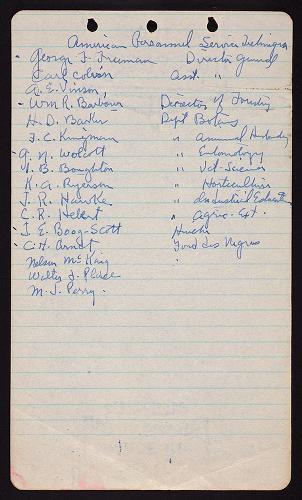 American Personnel Service Technique
- George F. Freeman Director General
Earl Colson Asst. "
A. E. Vinson
- Wm R. Barbour Director of Forestry
H. D. Barker Dept Botany
F. C. Kingman " Animal Husbandry
- G. N. Wolcott " Entomology
J. B. Boughton " Vet. Science
K. A. Ryerson " Horticulture
J. R. Hawke " Industrial Education
C. R. Hebert " Agric. Ext.
- J. E. Boog-Scott Hinche
- C. H. Arndt Fond des Nègres
Nelson McKaig "
Walter J. Place
M. J. Perry.